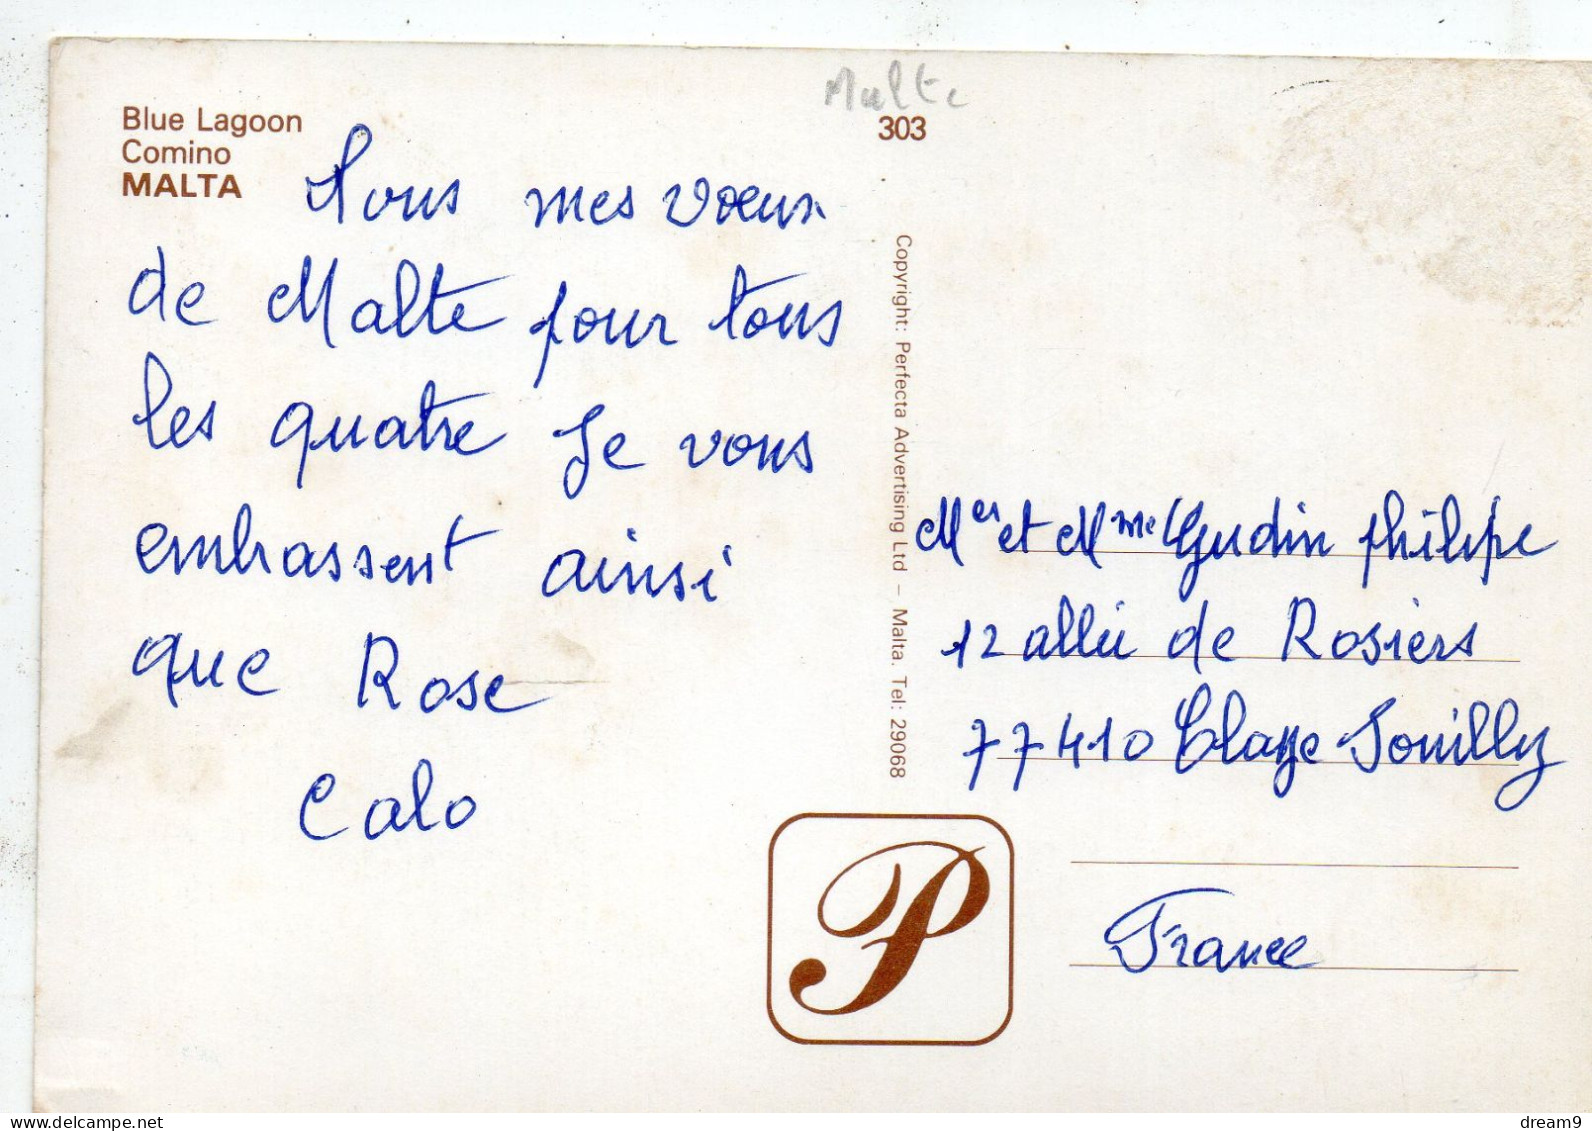 Malte
303
Blue Lagoon
Comino
MALTA
Tous mes vœux
de Malte pour tous
les quatre Je vous
embrassent ainsi
que Rose
Calo
Copyright: Perfecta Advertising Ltd – Malta. Tel: 29068
Mer et Mme Gudin Philipe
12 allée de Rosiers
77410 Claye Souilly
France
P
delcampe.net
dream9